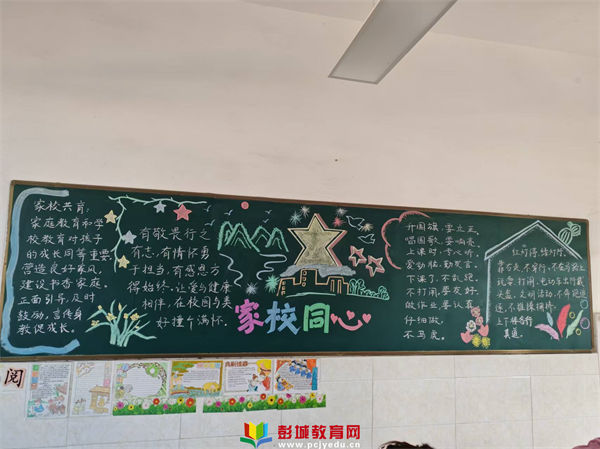 家校共育:
家庭教育和学
校教育对孩子
的成长同等重要
营造良好家风,
建设书香家庭
正面引导,及时
鼓励,言传身
教促成长。
有敬畏行之
有志,有情怀勇
于担当,有感恩方
得始终,让爱与健康
相伴,在校园与美
好撞个满怀.
家校同心
升国旗,要立正,
唱国歌,要响亮,
上课时,专心听,
爱动脑勤发言,
下课了,不乱跑
不打闹,要友好,
做作业,要认真,
仔细做,
不马虎。
红灯停,绿灯行,
靠右走,不穿行,不在马路上
玩耍打闹,电动车出行戴
头盔,文明活动,不奔跑追
逐,不推搡拥挤,
上下楼靠右
阅
彭城教育网
www.pcjyedu.cn